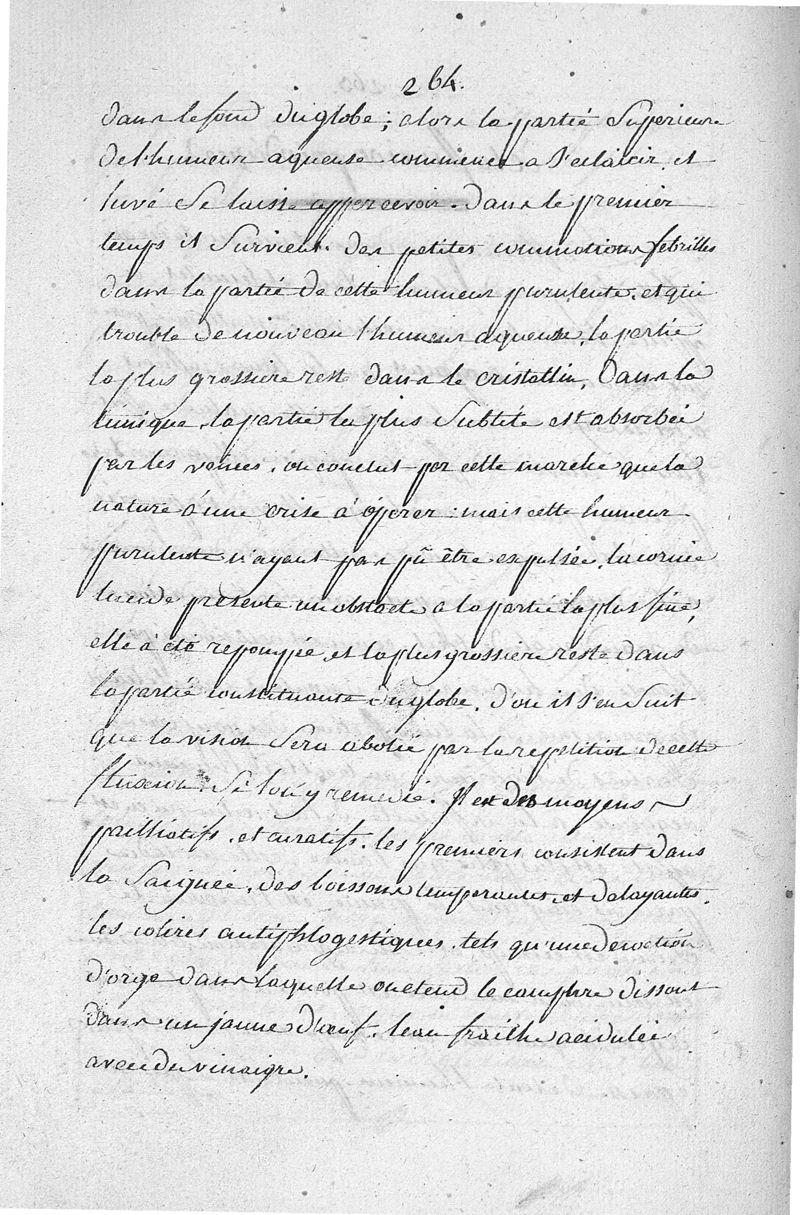 264.
dans le fond du globe; alors la partié Superieure
de l'humeur aqueuse commence a s'eclaircir, et
l'uvé se laisse appercevoir. dans le premier
temps il survient des petites commotions febrilles
dans la partié de cette humeur purulente, et qui
trouble de nouveau l'humeur aqueuse, la partie
la plus grossiere reste dans le cristallin, dans la
tunique, la partie la plus subtile est absorbée
par les veines. on conclut par cette marche que la
nature à une crise à opperer: mais cette humeur
purulente n'ayant pas pû être expulsée, la cornée
lucide presente un obstacle a la partié la plus fine,
elle à été repompée, et la plus grossiere reste dans
la partié constituante du globe. d'ou il s'en suit
que la vision sera abolie par la repetition de cette
fluxion si lon y remedie. Il est des moyens
palliatifs, et curatifs. les premiers consistent dans
la saignée, des boissons temperantes, et delayantes,
les colires antiphlogestiques, tels qu'une decoction
d'orge dans laquelle on etend le camphre dissout
dans un jaune d'œuf, leau fraiche acidulée
avec du vinaigre.